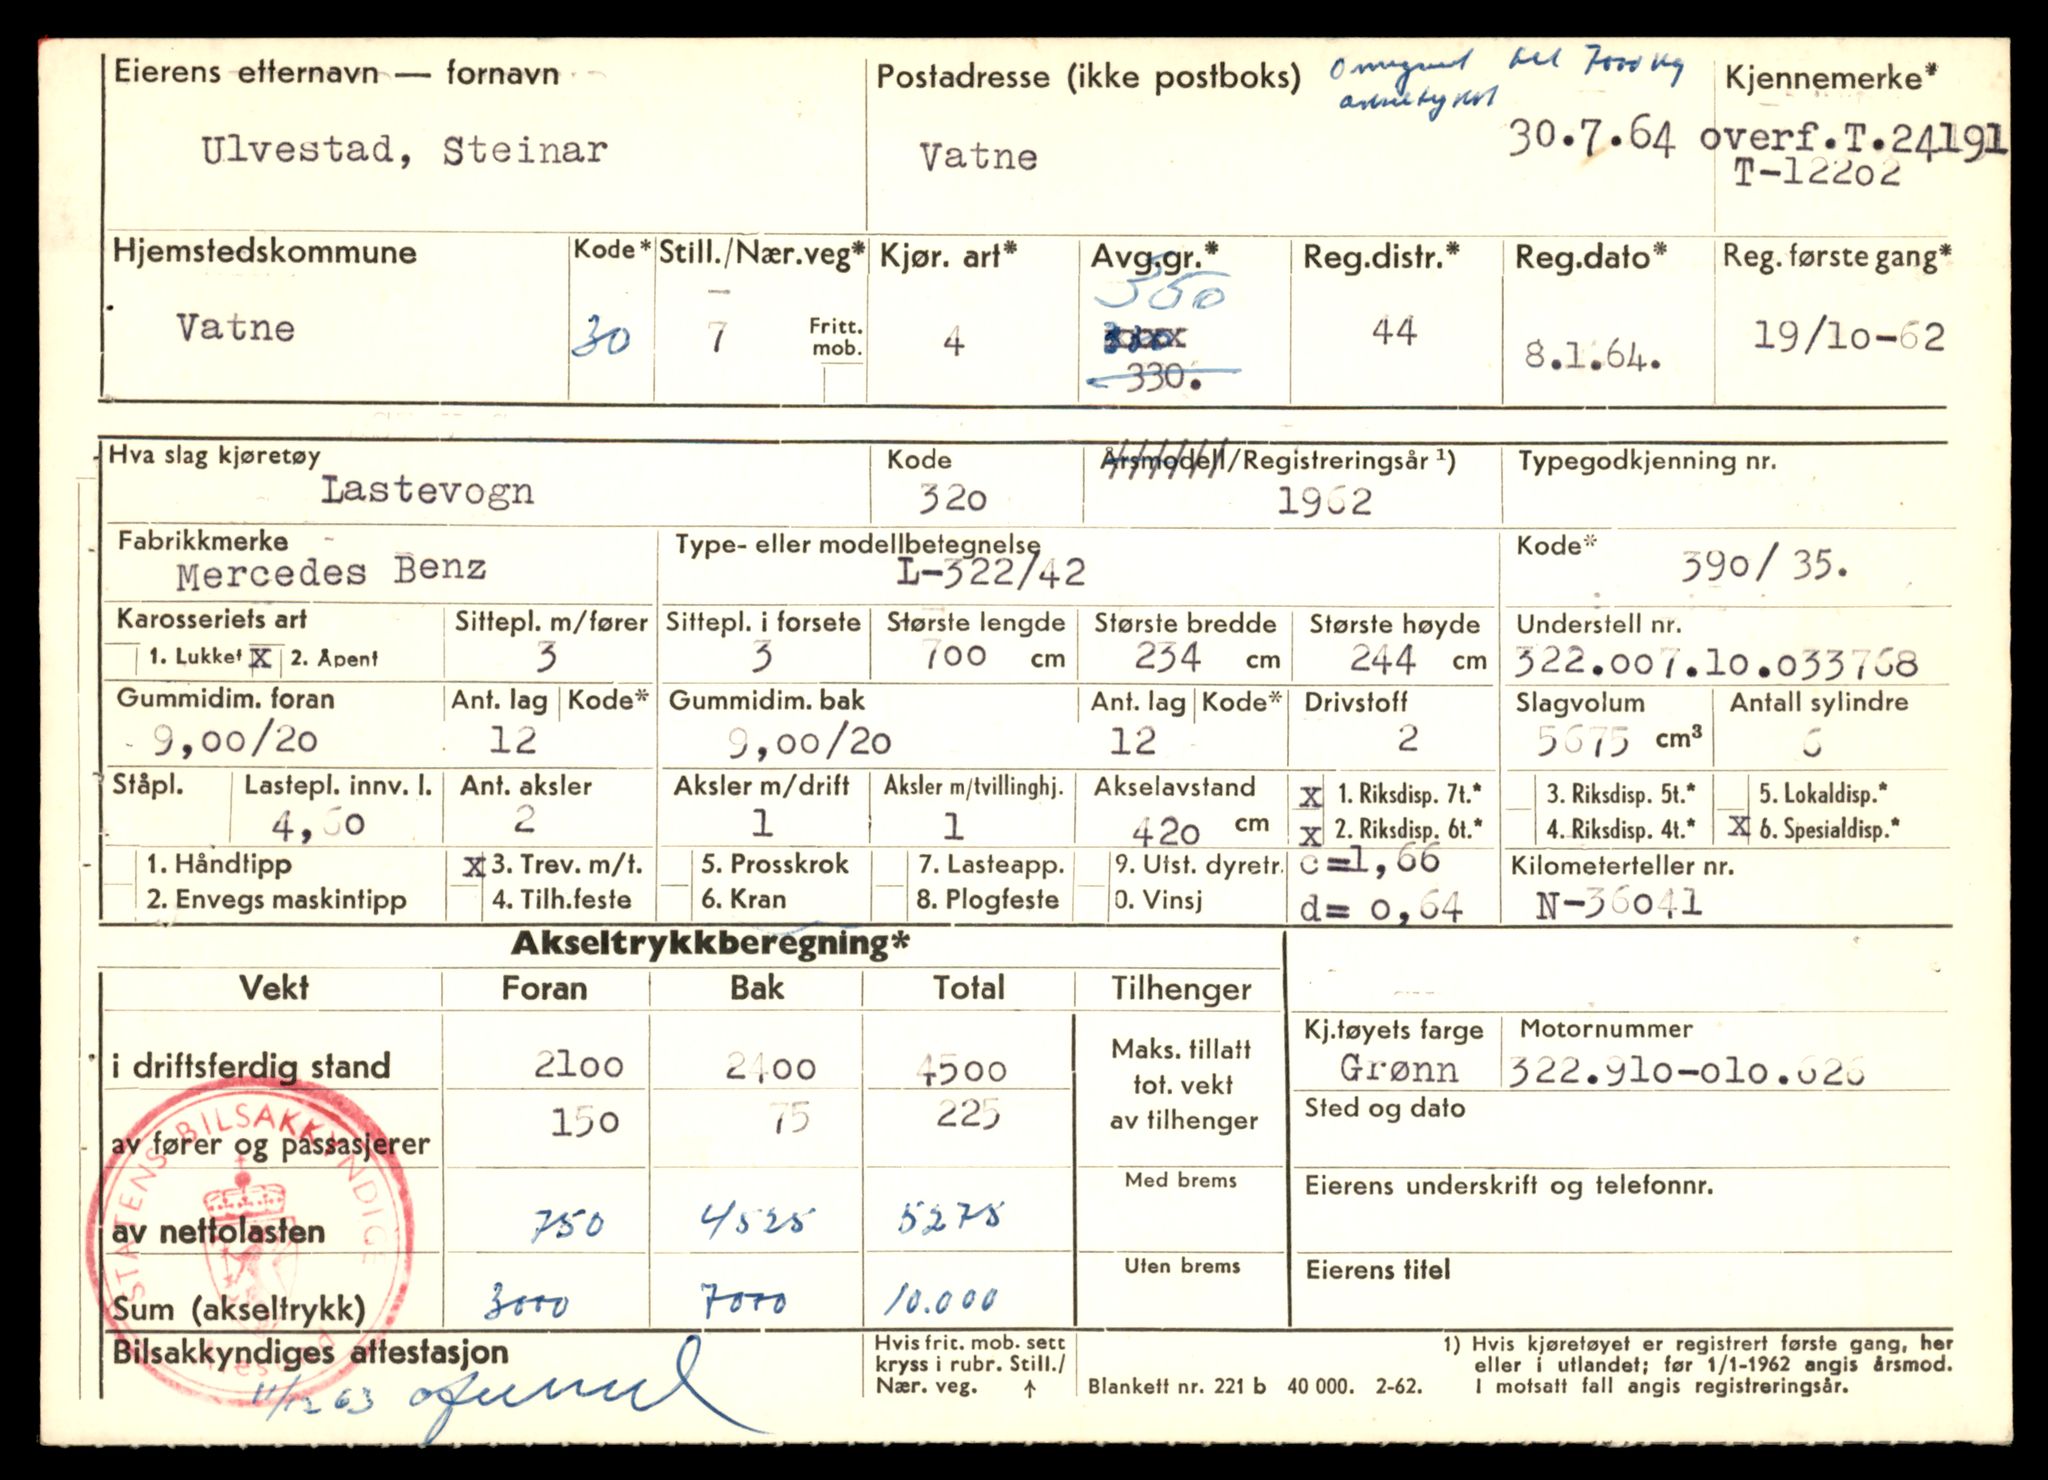 Eierens etternavn — fornavn Postadresse (ikke postboks) til 7000 kg Kjennemerke*
akseltrykk
Ulvestad, Steinar Vatne 30.7.64 overf.T.24191
T-12202
Hjemstedskommune Kode* Still./Nær.veg* Kjør. art* Avg.gr.* Reg.distr.* Reg.dato* Reg. første gang*
Vatne 30 7 Fritt. mob. 4 350 330. 44 8.1.64. 19/10-62
Hva slag kjøretøy Kode Årsmodell/Registreringsår ¹) Typegodkjenning nr.
Lastevogn 320 1962
Fabrikkmerke Type- eller modellbetegnelse Kode*
Mercedes Benz L-322/42 390/35.
Karosseriets art Sittepl. m/fører Sittepl. i forsete Største lengde Største bredde Største høyde Understell nr.
1. Lukket X 2. Åpent 3 3 700 cm 234 cm 244 cm 322.007.10.033768
Gummidim. foran Ant. lag Kode* Gummidim. bak Ant. lag Kode* Drivstoff Slagvolum Antall sylindre
9,00/20 12 9,00/20 12 2 5675 cm³ 6
Ståpl. Lastepl. innv. l. Ant. aksler Aksler m/drift Aksler m/tvillinghj. Akselavstand X 1. Riksdisp. 7t.* 3. Riksdisp. 5t.* 5. Lokaldisp.*
4,60 2 1 1 420 cm X 2. Riksdisp. 6t.* 4. Riksdisp. 4t.* X 6. Spesialdisp.*
1. Håndtipp X 3. Trev. m/t. 5. Prosskrok 7. Lasteapp. 9. Utst. dyretr. c=1,66 Kilometerteller nr.
2. Envegs maskintipp 4. Tilh.feste 6. Kran 8. Plogfeste 0. Vinsj d= 0,64 N-36041
Akseltrykkberegning*
Vekt Foran Bak Total Tilhenger
i driftsferdig stand 2100 2400 4500 Maks. tillatt tot. vekt av tilhenger Kj.tøyets farge Motornummer
Grønn 322.910-010.626
av fører og passasjerer 150 75 225 Sted og dato
av nettolasten 750 4525 5275 Med brems Eierens underskrift og telefonnr.
Sum (akseltrykk) 3000 7000 10.000 Uten brems Eierens titel
STATENS BILSAKKYNDIGE
Bilsakkyndiges attestasjon Hvis frit. mob. sett 1) Hvis kjøretøyet er registrert første gang, her
kryss i rubr. Still./ eller i utlandet; før 1/1-1962 angis årsmod.
11/12 63 Nær. veg. ↑ Blankett nr. 221 b 40 000. 2-62. I motsatt fall angis registreringsår.